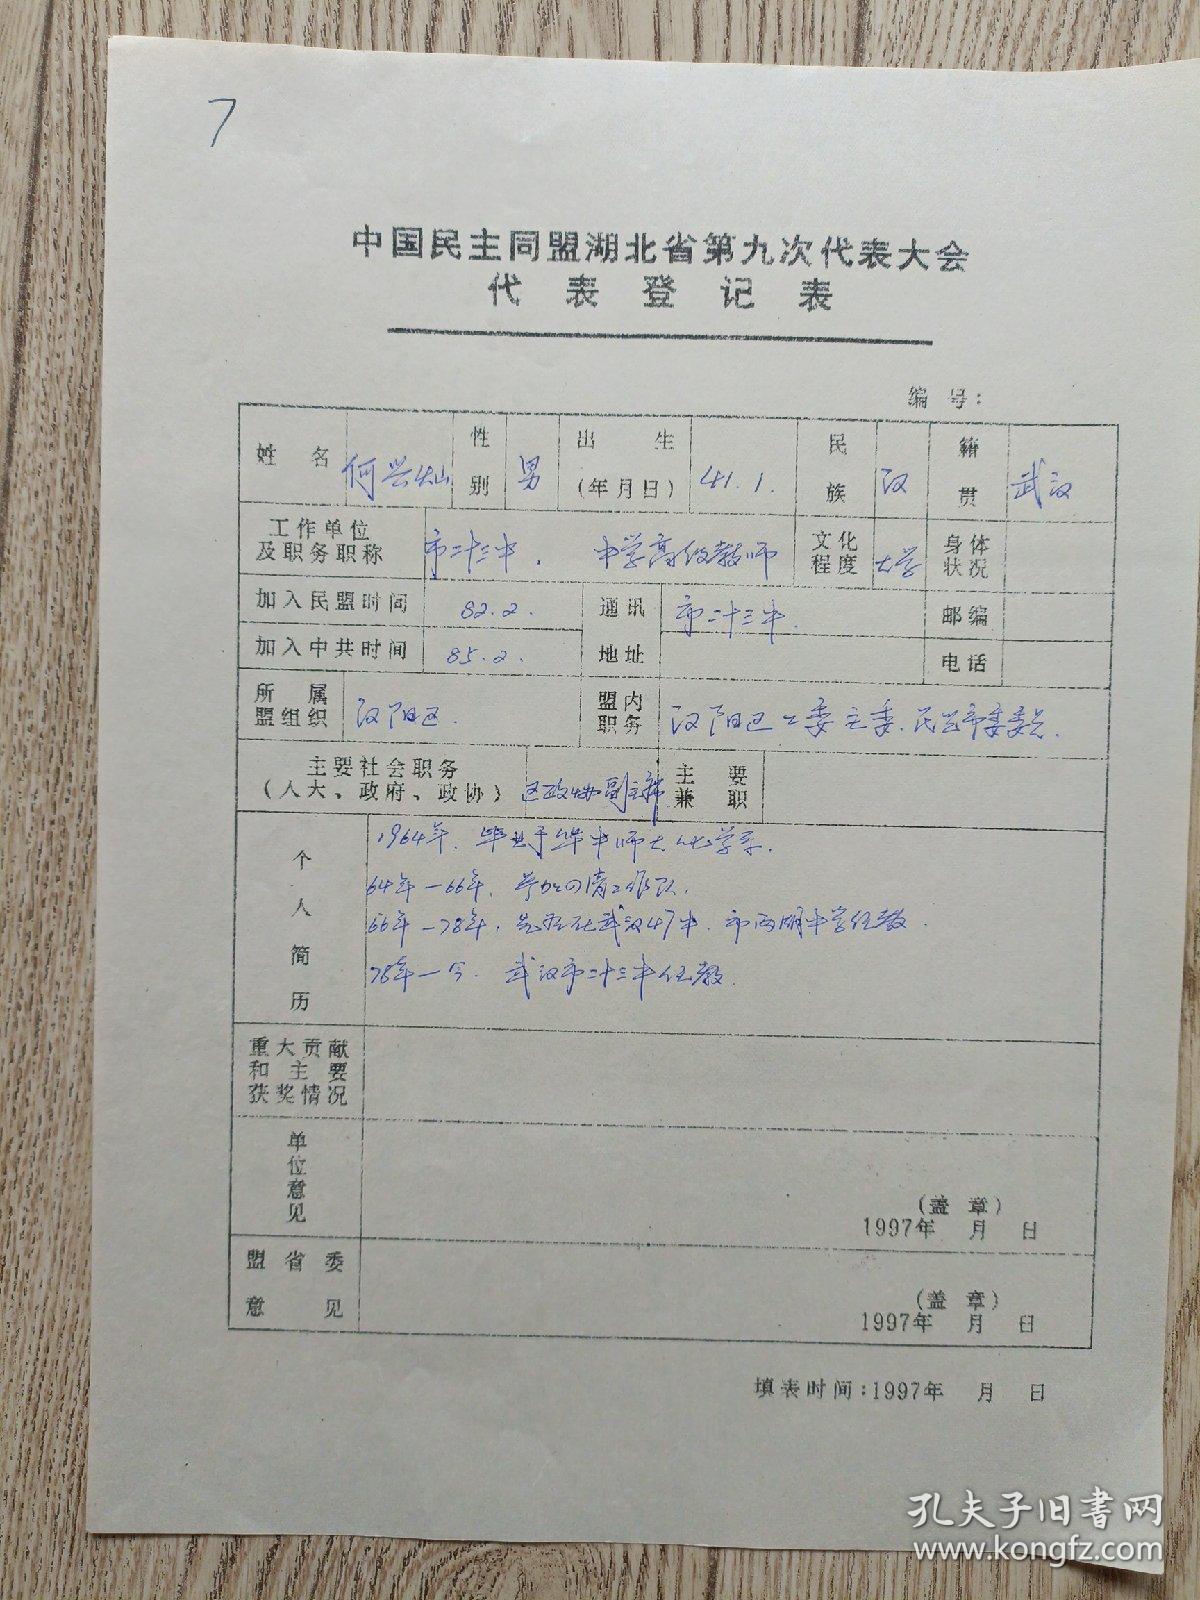 7
中国民主同盟湖北省第九次代表大会
代表登记表
编号：
姓名 何兴灿 性别 男 出生(年月日) 41.1. 民族 汉 籍贯 武汉
工作单位及职务职称 市二十三中. 中学高级教师 文化程度 大学 身体状况
加入民盟时间 82.2. 通讯地址 市二十三中. 邮编
加入中共时间 85.2. 电话
所属盟组织 汉阳区. 盟内职务 汉阳区工委主委、民盟市委委员.
主要社会职务(人大、政府、政协) 区政协副主席 主要兼职
个人简历
1964年. 毕业于华中师大化学系.
64年—66年. 参加四清工作队.
66年—78年. 先后在武汉47中. 市两湖中学任教.
78年—今. 武汉市二十三中任教.
重大贡献和主要获奖情况
单位意见
(盖章)
1997年 月 日
盟省委意见
(盖章)
1997年 月 日
填表时间：1997年 月 日
孔夫子旧书网
www.kongfz.com